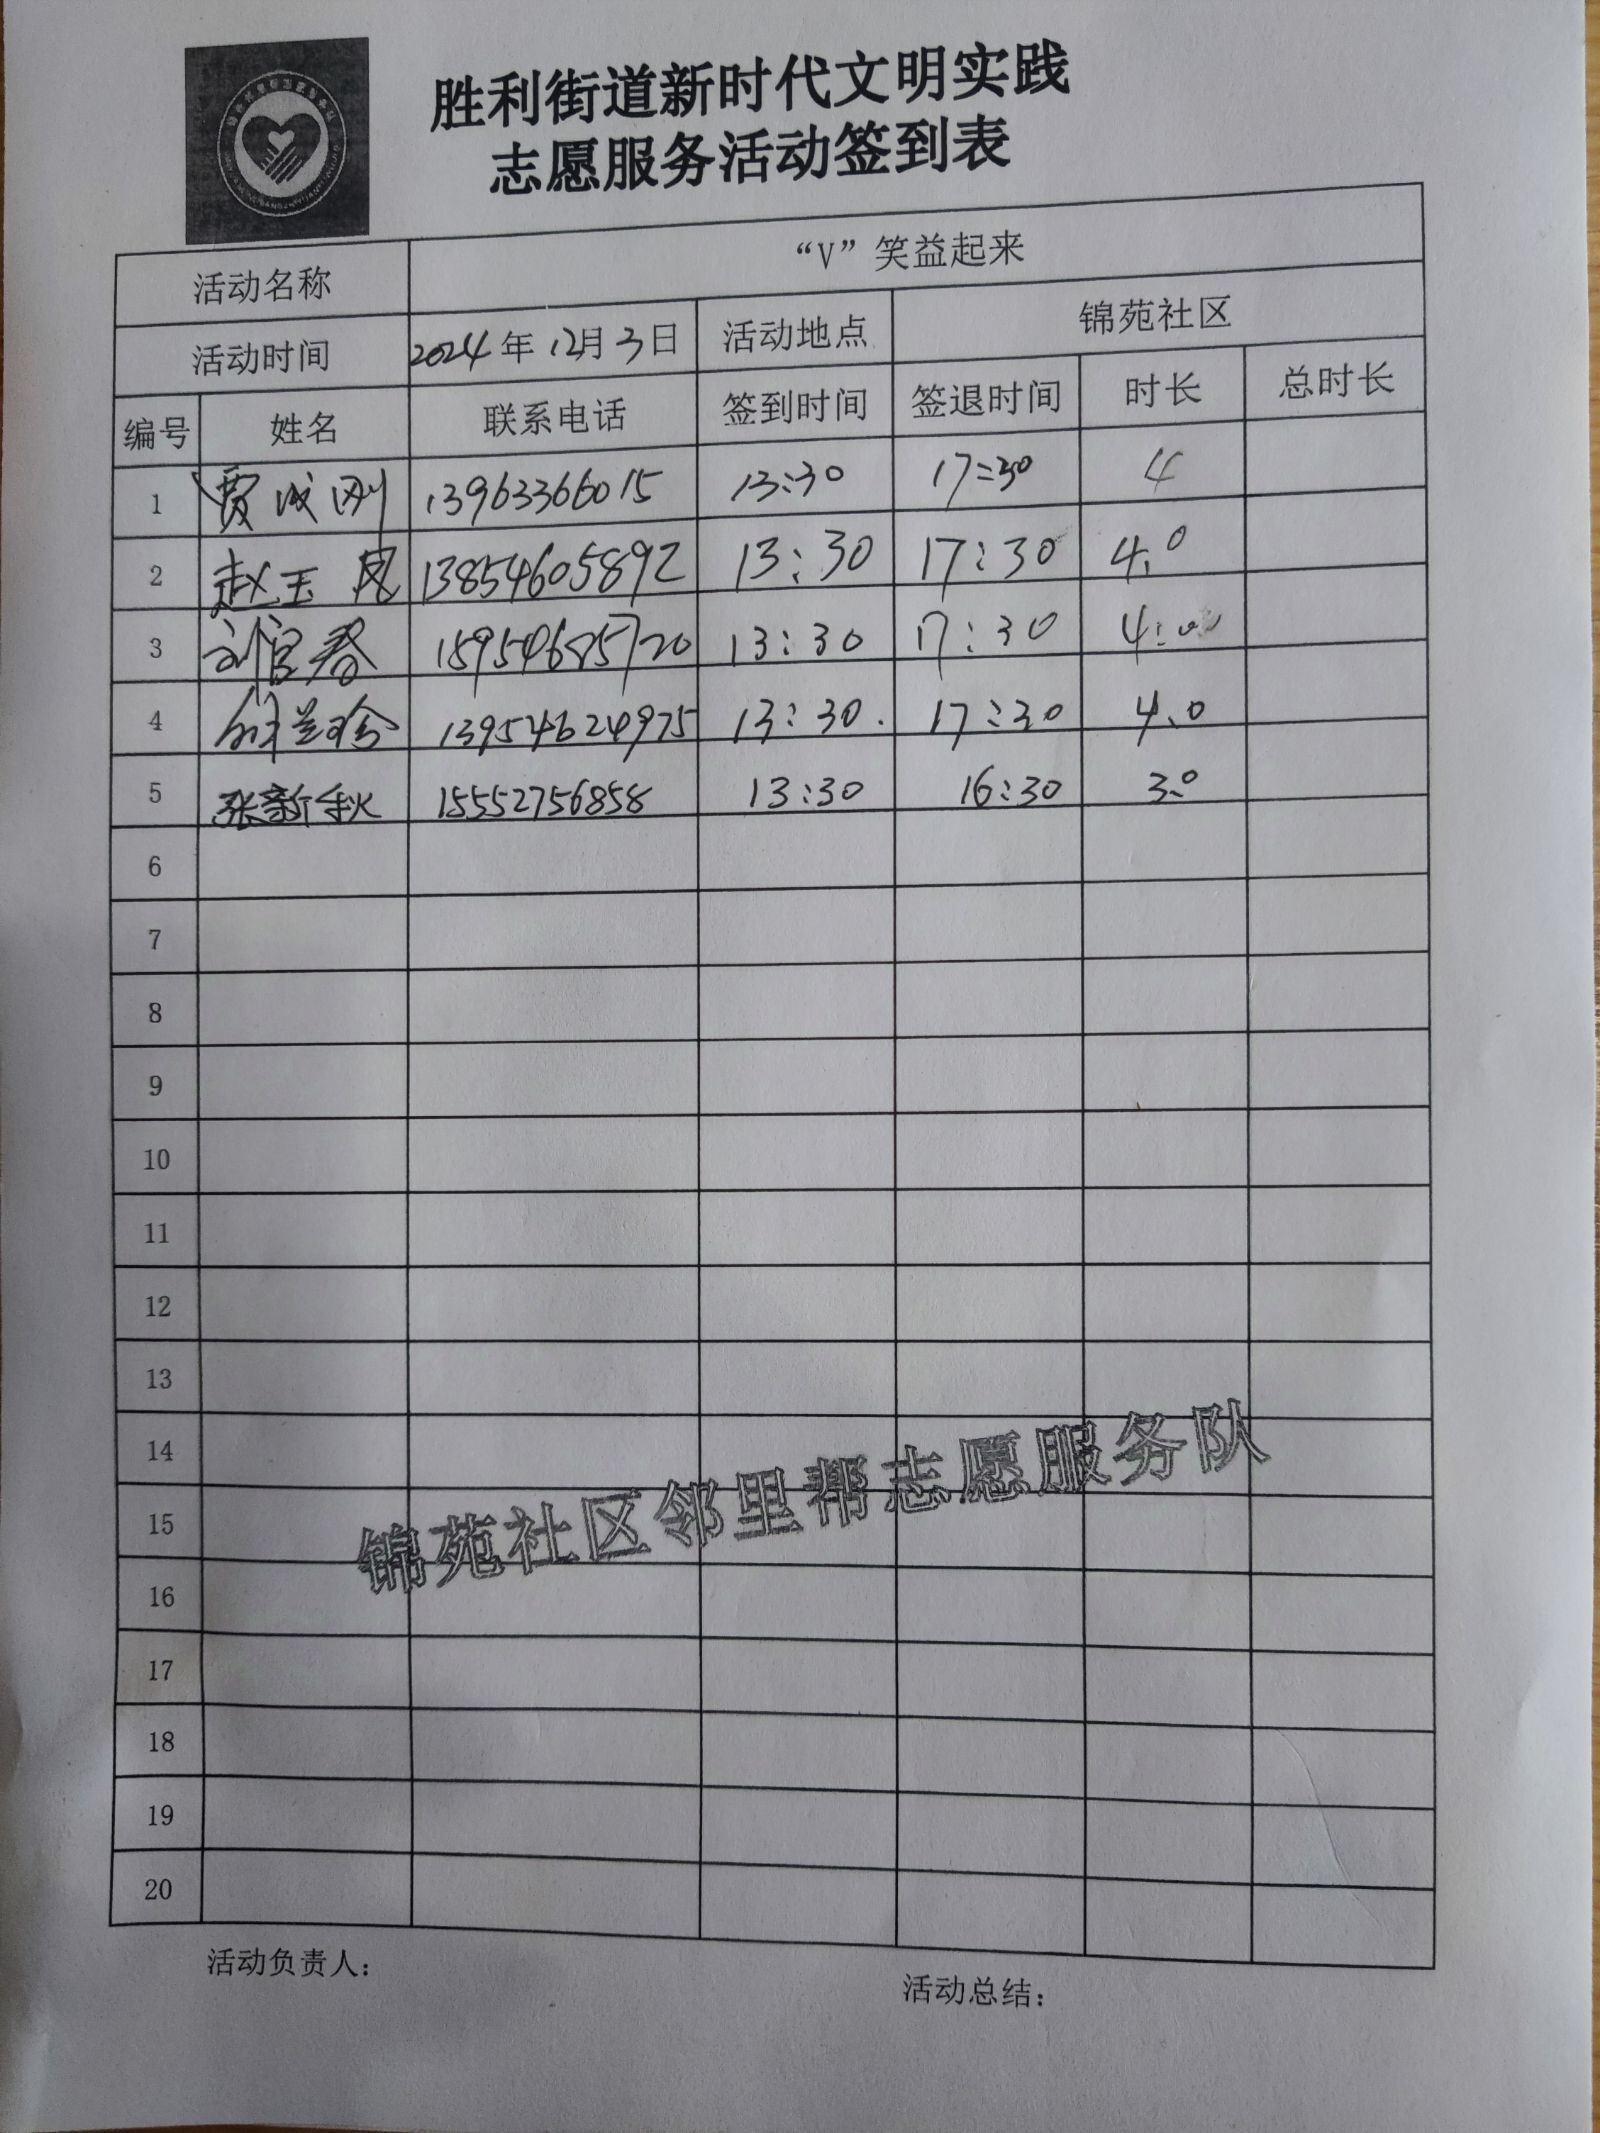 胜利街道新时代文明实践
志愿服务活动签到表
活动名称 “V”笑益起来
活动时间 2024年12月3日 活动地点 锦苑社区
编号 姓名 联系电话 签到时间 签退时间 时长 总时长
1 贾成刚 13963366015 13:30 17:30 4
2 赵玉凤 13854605892 13:30 17:30 4.0
3 刘官春 15954685720 13:30 17:30 4.0
4 兰珍 13954624975 13:30. 17:30 4.0
5 张新秋 15552756858 13:30 16:30 3.0
6
7
8
9
10
11
12
13
14
15
16
17
18
19
20
锦苑社区邻里帮志愿服务队
活动负责人：
活动总结：